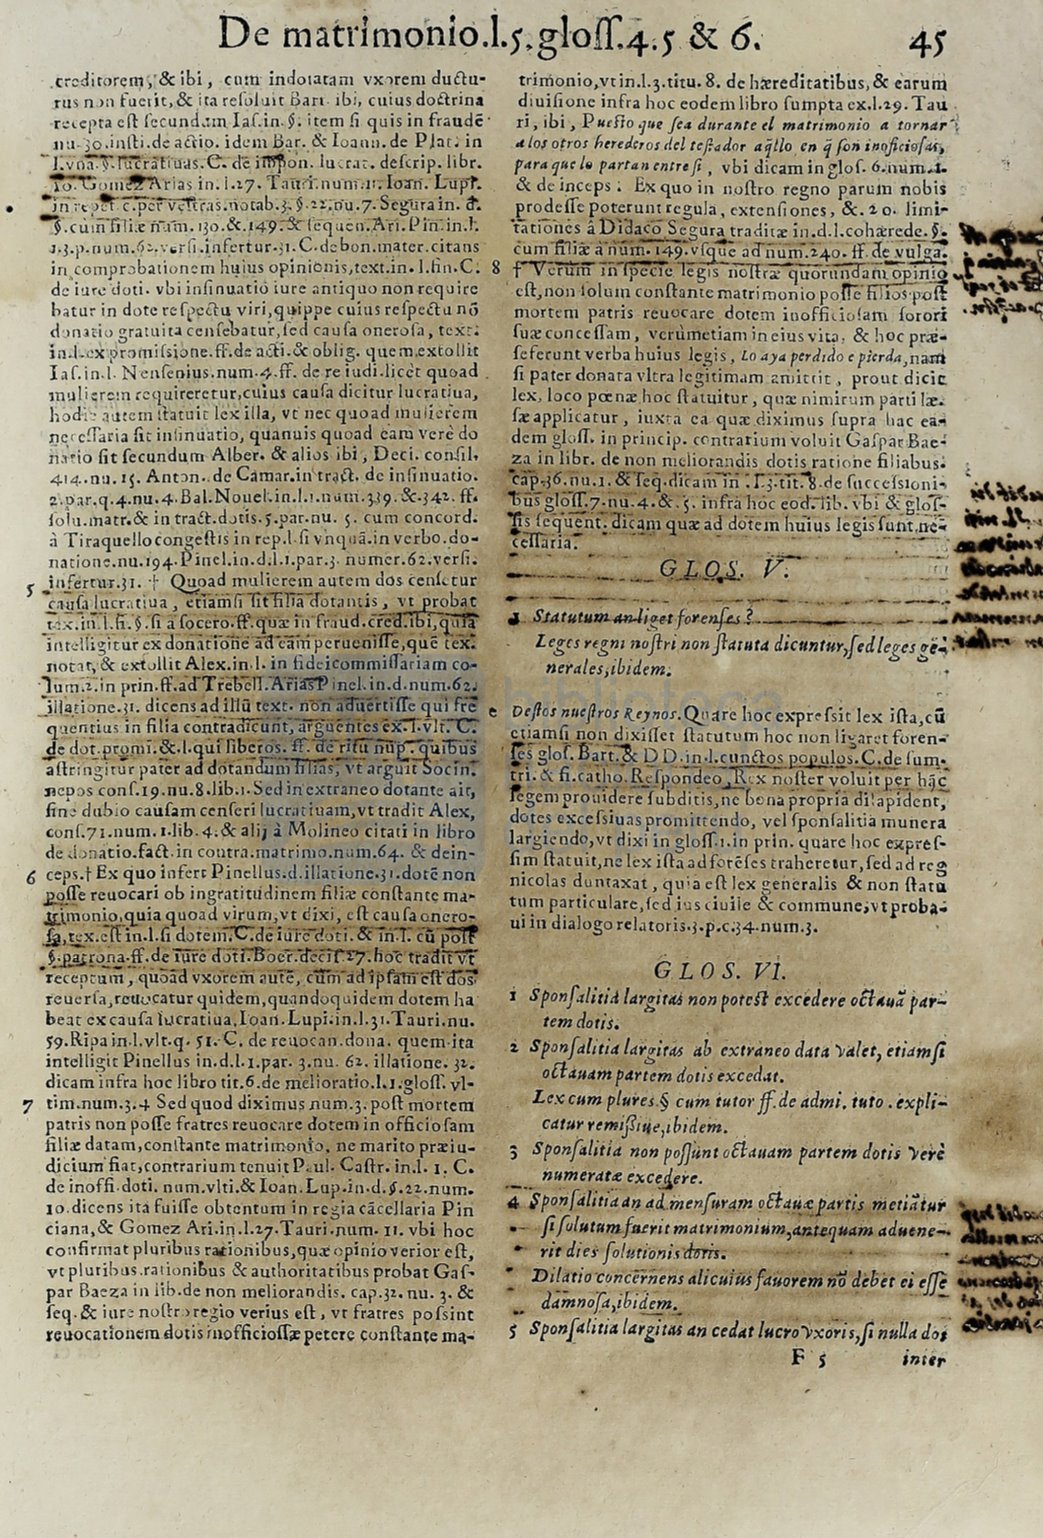 De matrimonio.l.5.gloss.4.5 & 6. 45
creditorem, & ibi, cum indotatam vxorem ductu-
rus non fuerit, & ita resoluit Bart. ibi, cuius doctrina
recepta est secundum Ias.in.§. item si quis in fraudē
nu.30.insti.de actio. idem Bar. & Ioann. de Plat. in
l.vna.§.lucratiuas.C. de impon. lucrat. descrip. libr.
10. Gomez Arias in. l.27. Tauri.num.11. Ioan. Lupi.
in repet. c.per vestras.notab.3. §.22.nu.7. Segura in. d.
§.cum filiæ num. 130.&.149.& sequen.Ari.Pin.in.l.
1.3.p.num.62.versi.infertur.31.C.de bon.mater.citans
in comprobationem huius opinionis,text.in.l.fin.C.
de iure doti. vbi insinuatio iure antiquo non require
batur in dote respectu viri, quippe cuius respectu nō
donatio gratuita censebatur,sed causa onerosa, text.
in.l.ex promissione.ff.de acti.& oblig. quem.extollit
Ias.in.l. Nensenius.num.4.ff. de re iudi.licet quoad
mulierem requireretur,cuius causa dicitur lucratiua,
hodie autem statuit lex illa, vt nec quoad mulierem
necessaria sit insinuatio, quanuis quoad eam verè do
natio sit secundum Alber. & alios ibi, Deci. consil.
414.nu.15. Anton. de Camar.in tract. de insinuatio.
2.par.q.4.nu.4.Bal.Nouel.in.l.1.num.339.&.342. ff.
solu.matr.& in tract.dotis.5.par.nu. 5. cum concord.
à Tiraquello congestis in rep.l.si vnquā.in verbo.do-
natione.nu.194.Pinel.in.d.l.1.par.3. numer.62.versi.
5 infertur.31. † Quoad mulierem autem dos censetur
causa lucratiua, etiamsi sit filia dotantis, vt probat
tex.in.l.fi.§.si à socero.ff.quæ in fraud.cred.ibi,quia
intelligitur ex donatione ad eam peruenisse,quē tex.
notat, & extollit Alex.in.l. in fideicommissariam co-
lum.2.in prin.ff.ad Trebell.Arias Pinel.in.d.num.62.
illatione.31. dicens ad illū text. non aduertisse qui fre
quentius in filia contradicunt, arguentes ex.l.vlt. C.
de dot.promi.&.l.qui liberos. ff. de ritu nup. quibus
astringitur pater ad dotandum filias, vt arguit Socin.
nepos cons.19.nu.8.lib.1.Sed in extraneo dotante ait,
sine dubio causam censeri lucratiuam,vt tradit Alex,
cons.71.num.1.lib.4.& alij à Molineo citati in libro
de donatio.fact.in contra.matrimo.num.64. & dein-
6 ceps.† Ex quo infert Pinellus.d.illatione.31.dotē non
posse reuocari ob ingratitudinem filiæ constante ma-
trimonio,quia quoad virum,vt dixi, est causa onero-
sa,tex.est in.l.si dotem.C.de iure doti.& in.l. cū post
§.patrona.ff.de iure doti.Boer.decis.27.hoc tradit vt
receptum, quoad vxorem autē, cum ad ipsam est dos
reuersa,reuocatur quidem,quandoquidem dotem ha
beat ex causa lucratiua,Ioan.Lupi.in.l.31.Tauri.nu.
59.Ripa in.l.vlt.q. 51. C. de reuocan.dona. quem ita
intelligit Pinellus in.d.l.1.par. 3.nu. 62. illatione. 32.
dicam infra hoc libro tit.6.de melioratio.l.1.gloss. vl-
7 tim.num.3.4 Sed quod diximus num.3. post mortem
patris non posse fratres reuocare dotem in officiosam
filiæ datam,constante matrimonio, ne marito præiu-
dicium fiat,contrarium tenuit Paul. Castr. in.l. 1. C.
de inoffi.doti. num.vlti.& Ioan.Lup.in.d.§.22.num.
10.dicens ita fuisse obtentum in regia cācellaria Pin
ciana,& Gomez Ari.in.l.27.Tauri.num. 11. vbi hoc
confirmat pluribus rationibus,quæ opinio verior est,
vt pluribus.rationibus & authoritatibus probat Gas-
par Baeza in lib.de non meliorandis. cap.32. nu. 3. &
seq.& iure nostro regio verius est, vt fratres possint
reuocationem dotis inofficiossæ petere constante ma-
trimonio,vt in.l.3.titu. 8. de hæreditatibus,& earum
diuisione infra hoc eodem libro sumpta ex.l.29. Tau
ri, ibi, Puesto que sea durante el matrimonio a tornar
a los otros herederos del testador aq̃llo en q̃ son inoficiosas,
para que lo partan entre si, vbi dicam in glos. 6.num.1.
& de inceps. Ex quo in nostro regno parum nobis
prodesse poterunt regula, extensiones, &.20. limi-
tationes à Didaco Segura traditæ in.d.l.cohærede.§.
cum filiæ à num. 149.vsque ad num.240. ff. de vulga.
8 † Verum in specie legis nostræ quorundam opinio
est,non solum constante matrimonio posse filios post
mortem patris reuocare dotem inofficiosam sorori
suæ concessam, verùmetiam in eius vita, & hoc præ-
seferunt verba huius legis, Lo aya perdido e pierda, nam
si pater donata vltra legitimam amittit, prout dicit
lex, loco pœnæ hoc statuitur, quæ nimirum parti læ-
sæ applicatur, iuxta ea quæ diximus supra hac ea-
dem gloss. in princip. contrarium voluit Gaspar Bae-
za in libr. de non meliorandis dotis ratione filiabus.
cap.36.nu.1. & seq.dicam in .l.3.tit.8.de successioni-
bus gloss.7.nu.4.&.5. infra hoc eod.lib.vbi & glos-
sis sequent. dicam quæ ad dotem huius legis sunt ne-
cessaria.
GLOS. V.
1 Statutum an liget forenses?
Leges regni nostri non statuta dicuntur, sed leges ge-
nerales, ibidem.
e Destos nuestros Reynos. Quare hoc expressit lex ista,cū
etiamsi non dixisset statutum hoc non ligaret foren-
ses glos. Bart.& DD.in.l.cunctos populos.C.de sum-
tri.& fi.catho.Respondeo, Rex noster voluit per hāc
legem prouidere subditis,ne bona propria dilapident,
dotes excessiuas promittendo, vel sponsalitia munera
largiendo,vt dixi in gloss.1.in prin. quare hoc expres-
sim statuit,ne lex ista ad forēses traheretur,sed ad reg
nicolas duntaxat, quia est lex generalis & non statu
tum particulare,sed ius ciuile & commune,vt proba-
ui in dialogo relatoris.3.p.c.34.num.3.
GLOS. VI.
1 Sponsalitia largitas non potest excedere octauā par-
tem dotis.
2 Sponsalitia largitas ab extraneo data valet, etiamsi
octauam partem dotis excedat.
Lex cum plures.§ cum tutor ff.de admi. tuto. expli-
catur remissiue,ibidem.
3 Sponsalitia non possunt octauam partem dotis verè
numeratæ excedere.
4 Sponsalitia an ad mensuram octauæ partis metiātur
si solutum fuerit matrimonium, antequam aduene-
rit dies solutionis dotis.
Dilatio concernens alicuius fauorem nō debet ei esse
damnosa,ibidem.
5 Sponsalitia largitas an cedat lucro vxoris, si nulla dos
F 5 inter